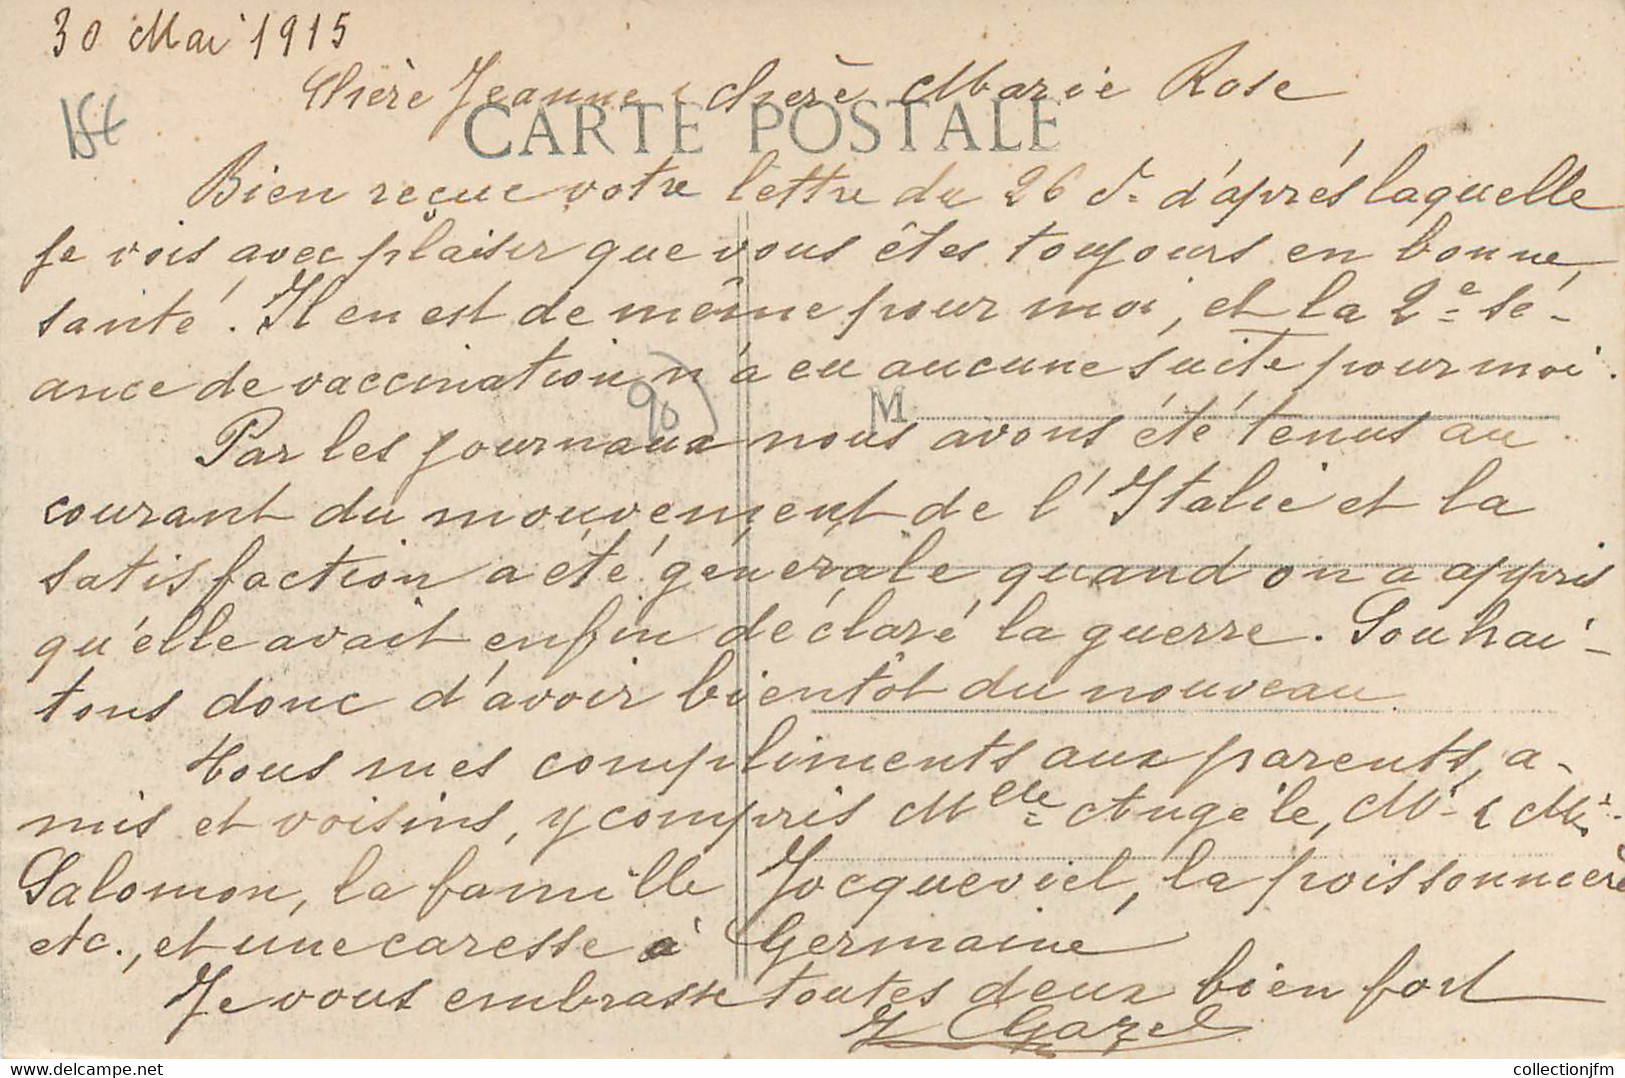 30 Mai 1915
15€
Chère Jeanne & chère Marie Rose
CARTE POSTALE
Bien reçue votre lettre du 26 ct d'après laquelle
je vois avec plaisir que vous êtes toujours en bonne
santé. Il en est de même pour moi, et la 2e sé-
ance de vaccination n'a eu aucune suite pour moi.
90)
M
Par les journaux nous avons été tenus au
courant du mouvement de l'Italie et la
satisfaction a été générale quand on a appris
qu'elle avait enfin déclaré la guerre. Souhai-
tons donc d'avoir bientôt du nouveau.
Tous mes compliments aux parents, a-
mis et voisins, y compris Melle Angèle, Mr & Me
Salomon, la famille Jocqueviel, la poissonnière
etc., et une caresse à Germaine
Je vous embrasse toutes deux bien fort
collectionjfm
www.delcampe.net